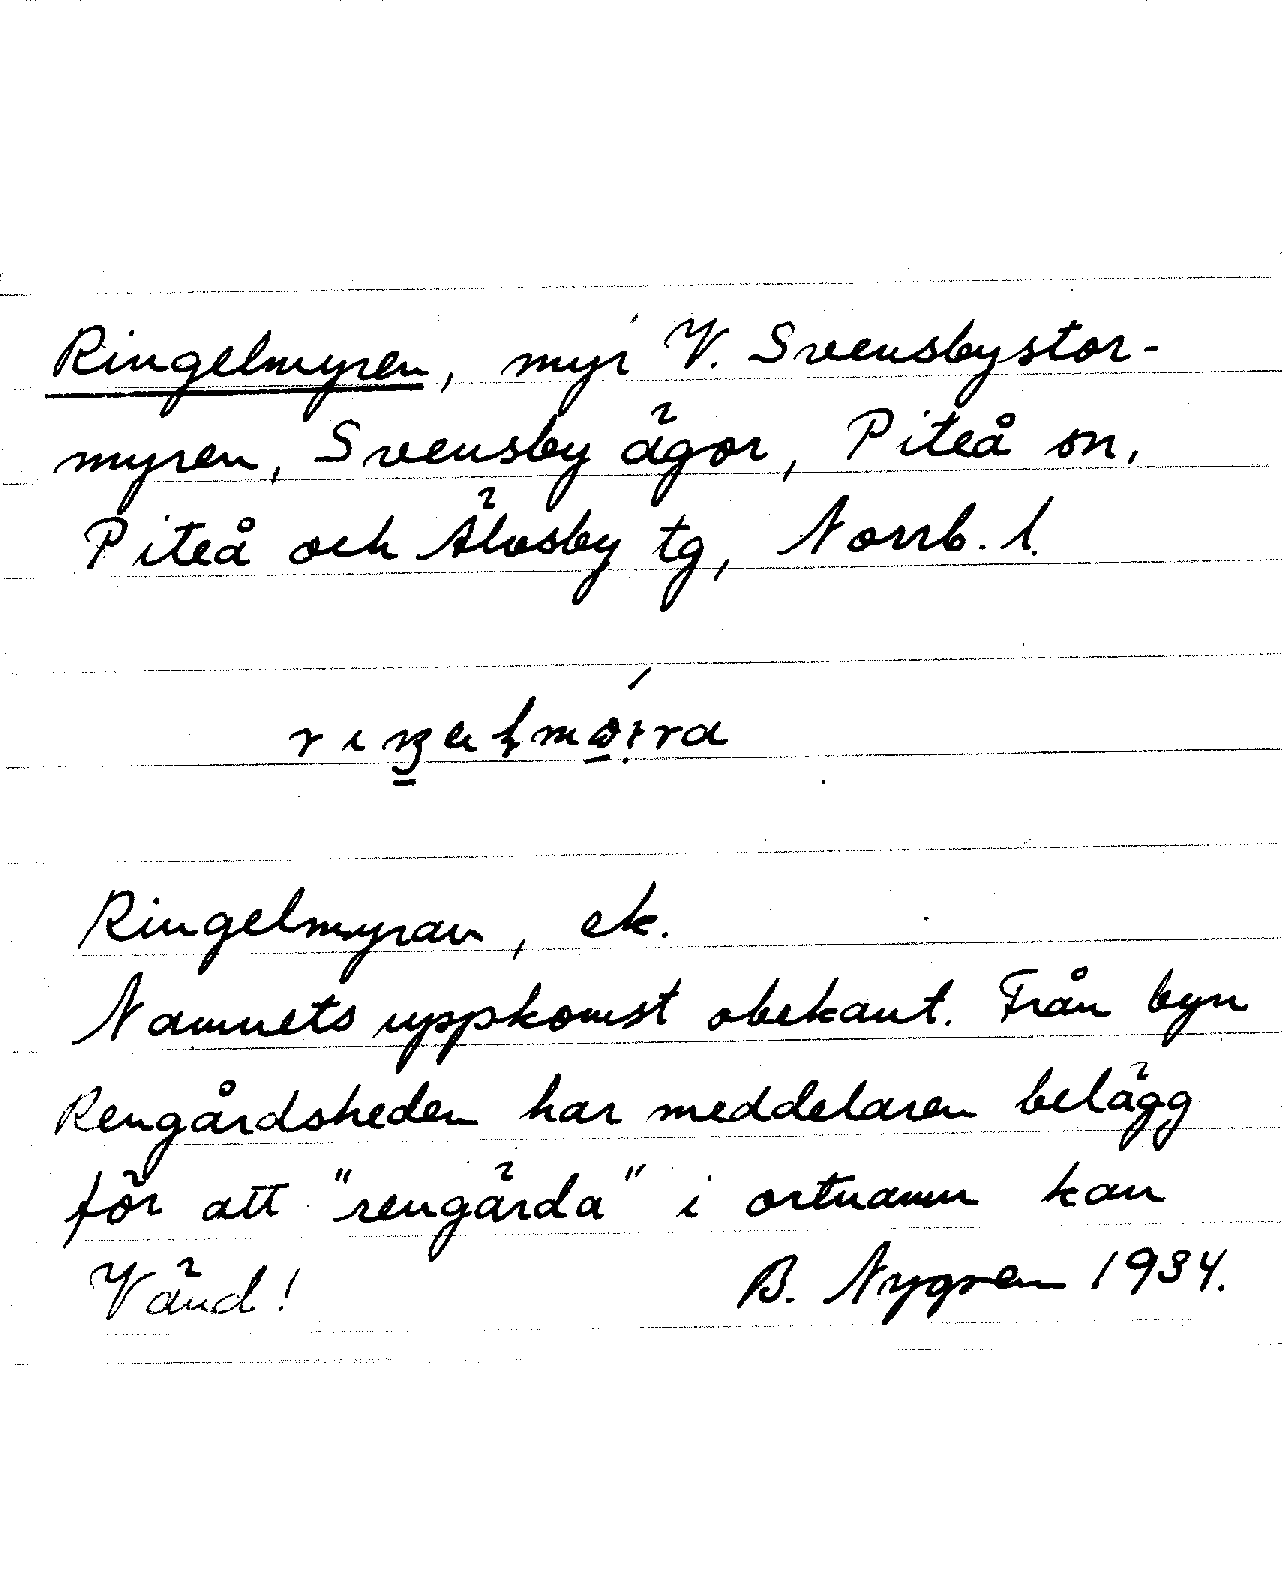 Ringelmyren, myr V. Svensbystor-
myren, Svensby ägor, Piteå sn,
Piteå och Älvsby tg, Norrb. l.
Ringelmyran, ek.
Namnets uppkomst obekant. Från byn
Rengårdsheden har meddelaren belägg
för att "rengärda" i ortnamn kan
Vänd! B. Nygren 1934.